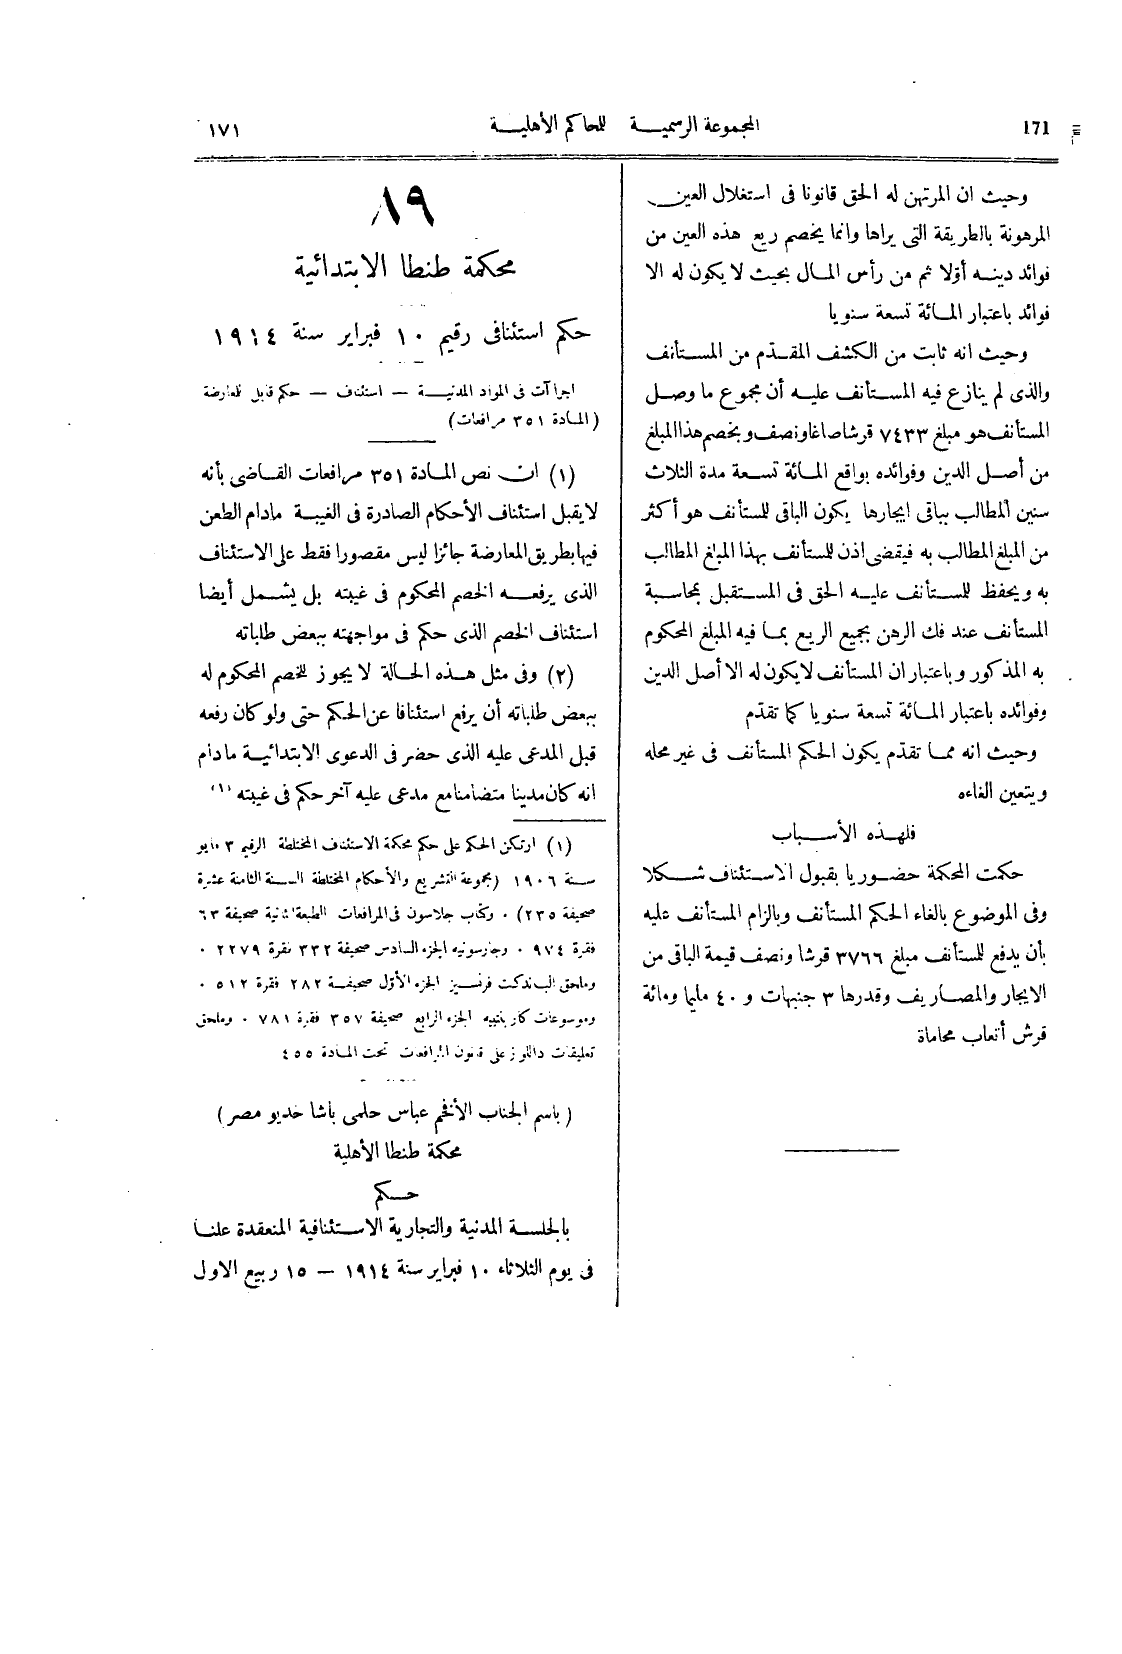 171 المجموعة الرسمية للمحاكم الأهلية ١٧١
وحيث ان المرتهن له الحق قانونا فى استغلال العين
المرهونة بالطريقة التى يراها وانما يخصم ريع هذه العين من
فوائد دينه أوّلا ثم من رأس المال بحيث لا يكون له الا
فوائد باعتبار المائة تسعة سنويا
وحيث انه ثابت من الكشف المقدّم من المستأنف
والذى لم ينازع فيه المستأنف عليه أن مجموع ما وصل
المستأنف هو مبلغ ٧٤٣٣ قرشا صاغا ونصف وبخصم هذا المبلغ
من أصل الدين وفوائده بواقع المائة تسعة مدة الثلاث
سنين المطالب بباقى ايجارها يكون الباقى للمستأنف هو أكثر
من المبلغ المطالب به فيقضى اذن للمستأنف بهذا المبلغ المطالب
به ويحفظ للمستأنف عليه الحق فى المستقبل بمحاسبة
المستأنف عند فك الرهن بجميع الريع بما فيه المبلغ المحكوم
به المذكور وباعتبار ان المستأنف لا يكون له الا أصل الدين
وفوائده باعتبار المائة تسعة سنويا كما تقدّم
وحيث انه مما تقدّم يكون الحكم المستأنف فى غير محله
ويتعين الغاءه
فلهذه الأسباب
حكمت المحكمة حضوريا بقبول الاستئناف شكلا
وفى الموضوع بالغاء الحكم المستأنف وبالزام المستأنف عليه
بأن يدفع للمستأنف مبلغ ٣٧٦٦ قرشا ونصف قيمة الباقى من
الايجار والمصاريف وقدرها ٣ جنيهات و ٤٠ مليما ومائة
قرش أتعاب محاماة
٨٩
محكمة طنطا الابتدائية
حكم استئنافى رقيم ١٠ فبراير سنة ١٩١٤
اجراآت فى المواد المدنية — استئناف — حكم قابل للمعارضة
(المادة ٣٥١ مرافعات)
(١) ان نص المادة ٣٥١ مرافعات القاضى بأنه
لا يقبل استئناف الأحكام الصادرة فى الغيبة مادام الطعن
فيها بطريق المعارضة جائزا ليس مقصورا فقط على الاستئناف
الذى يرفعه الخصم المحكوم فى غيبته بل يشمل أيضا
استئناف الخصم الذى حكم فى مواجهته ببعض طلباته
(٢) وفى مثل هذه الحالة لا يجوز للخصم المحكوم له
ببعض طلباته أن يرفع استئنافا عن الحكم حتى ولو كان رفعه
قبل المدعى عليه الذى حضر فى الدعوى الابتدائية مادام
انه كان مدينا متضامنا مع مدعى عليه آخر حكم فى غيبته (١)
(١) ارتكن الحكم على حكم محكمة الاستئناف المختلطة الرقيم ٣ مايو
سنة ١٩٠٦ (مجموعة التشريع والأحكام المختلطة السنة الثامنة عشرة
صحيفة ٢٣٥) ٠ وكتاب جلاسون فى المرافعات الطبعة الثانية صحيفة ٦٣
فقرة ٩٧٤ ٠ وجارسونيه الجزء السادس صحيفة ٣٣٢ فقرة ٢٢٧٩ ٠
وملحق البندكت فرنسيز الجزء الأوّل صحيفة ٢٨٢ فقرة ٥١٢ ٠
وموسوعات كاربنتييه الجزء الرابع صحيفة ٣٥٧ فقرة ٧٨١ ٠ وملحق
تعليقات داللوز على قانون المرافعات تحت المادة ٤٥٥
(باسم الجناب الأفخم عباس حلمى باشا خديو مصر)
محكمة طنطا الأهلية
حكم
بالجلسة المدنية والتجارية الاستئنافية المنعقدة علنا
فى يوم الثلاثاء ١٠ فبراير سنة ١٩١٤ — ١٥ ربيع الاول